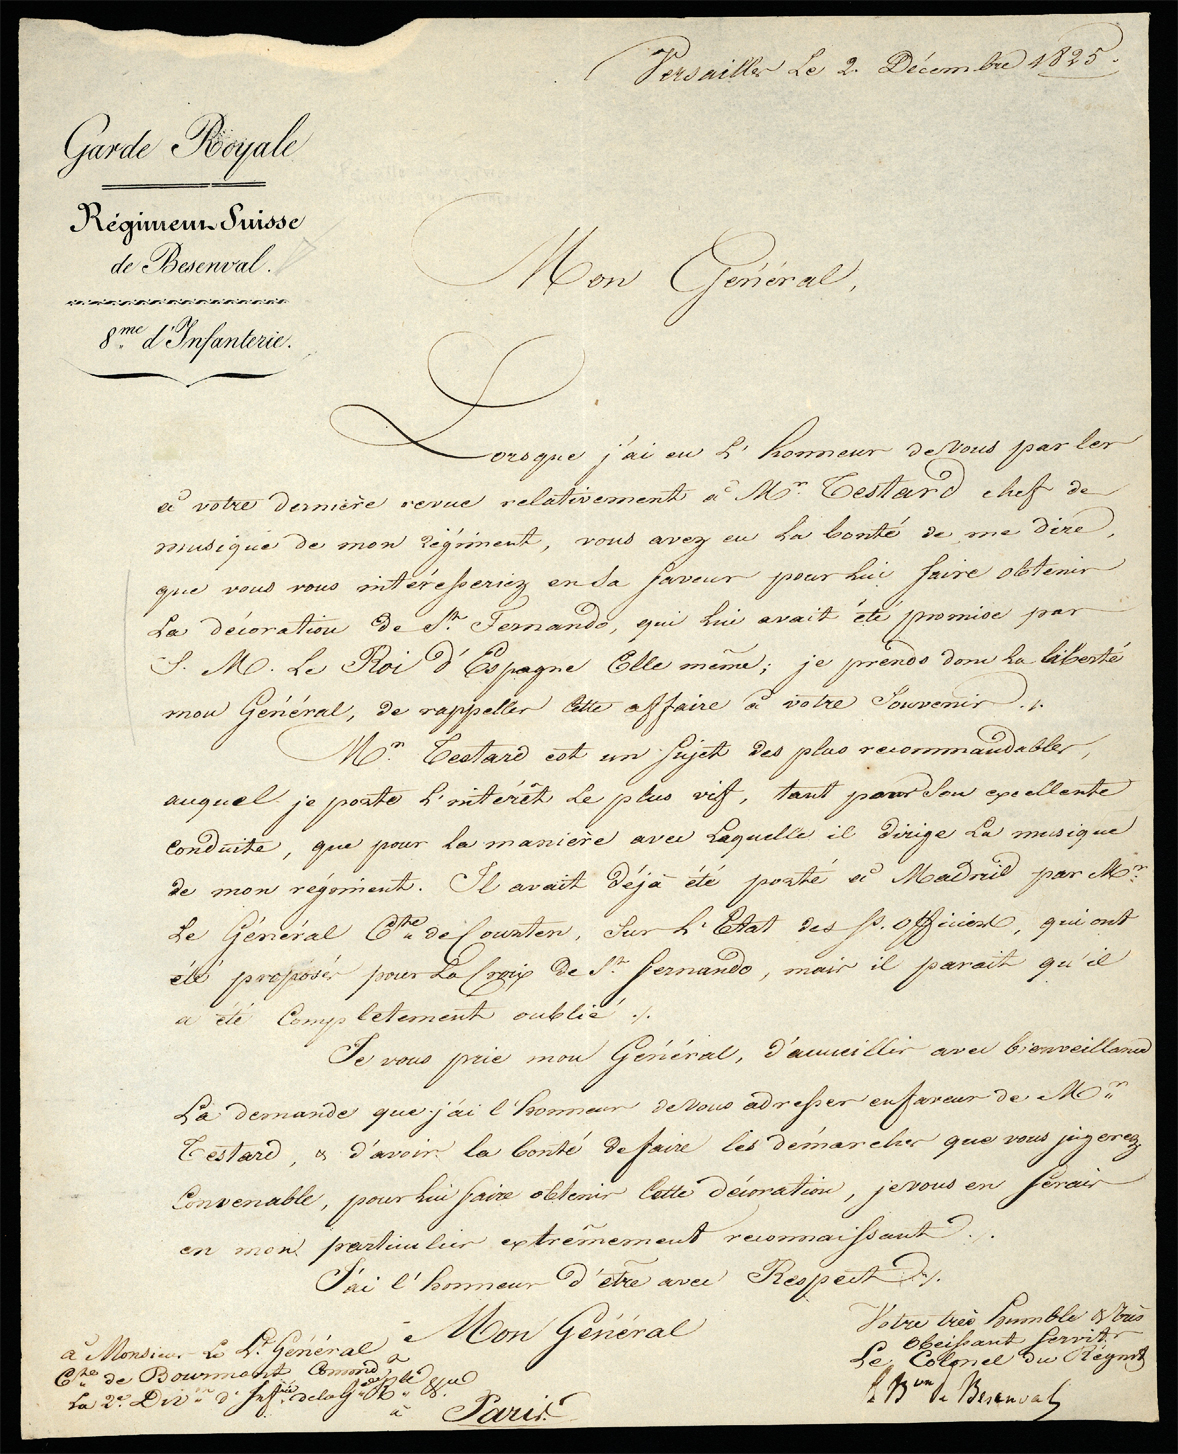 Versailles Le 2. Décembre 1825.
Garde Royale
Régiment Suisse
de Besenval.
8.me d'Infanterie.
Mon Général,
Lorsque j'ai eu L'honneur de Vous parler
à votre dernière revue relativement à Mr. Testard chef de
musique de mon régiment, vous avez eu La bonté de me dire,
que vous vous intéresseriez en Sa faveur pour Lui faire obtenir
La décoration de St. Fernando, qui Lui avait été promise par
S. M. Le Roi d'Espagne Elle même; je prends donc La liberté
mon Général, de rappeller Cette affaire à votre Souvenir ./.
Mr. Testard est un Sujet des plus recommandables,
auquel je porte L'intérêt Le plus vif, tant pour Son excellente
Conduite, que pour La manière avec Laquelle il dirige La musique
de mon régiment. Il avait déjà été porté à Madrid par Mr.
Le Général Cte. de Courten, Sur L'Etat des Ss. Officiers, qui ont
été proposés pour La Croix de St. Fernando, mais il parait qu'il
a été Completement oublié ./.
Je vous prie mon Général, d'accueillir avec bienveillance
La demande que j'ai l'honneur de Vous adresser en faveur de Mr.
Testard, & d'avoir la bonté de faire les démarches que vous jugerez
Convenable, pour Lui faire obtenir Cette décoration, je vous en Serais
en mon particulier extrêmement reconnaissant ./.
J'ai l'honneur d'être avec Respect ./.
Mon Général
Votre très humble & très
Obeissant Servitr
Le Colonel du Régmt
le Bon de Besenval
à Monsieur Le Lt. Général
Cte de Bourmont Commd.
La 2e. Divon d'Infrie de la Gde Rle &
à Paris